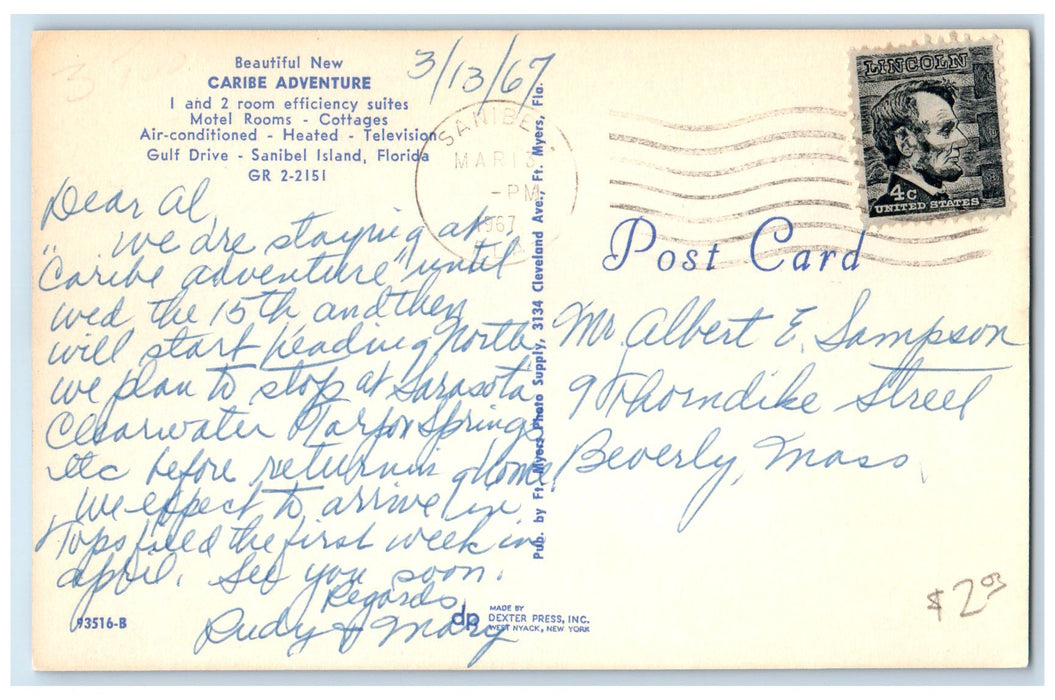 Beautiful New
CARIBE ADVENTURE
1 and 2 room efficiency suites
Motel Rooms - Cottages
Air-conditioned - Heated - Television
Gulf Drive - Sanibel Island, Florida
GR 2-2151
3/13/67
SANIBEL
MAR 13
-PM
1967
LINCOLN
4c
UNITED STATES
Dear Al,
We are staying at
"Caribe Adventure" until
Wed the 15th and then
will start heading North
We plan to stop at Sarasota
Clearwater Tarpon Springs
etc before returning home.
We expect to arrive in
Topsfield the first week in
April. See you soon.
Regards
Rudy & Mary
Pub. by Ft. Myers Photo Supply, 3134 Cleveland Ave., Ft. Myers, Fla.
Post Card
Mr. Albert E. Sampson
9 Thorndike Street
Beverly, Mass.
93516-B
dp
MADE BY
DEXTER PRESS, INC.
WEST NYACK, NEW YORK
$2.00